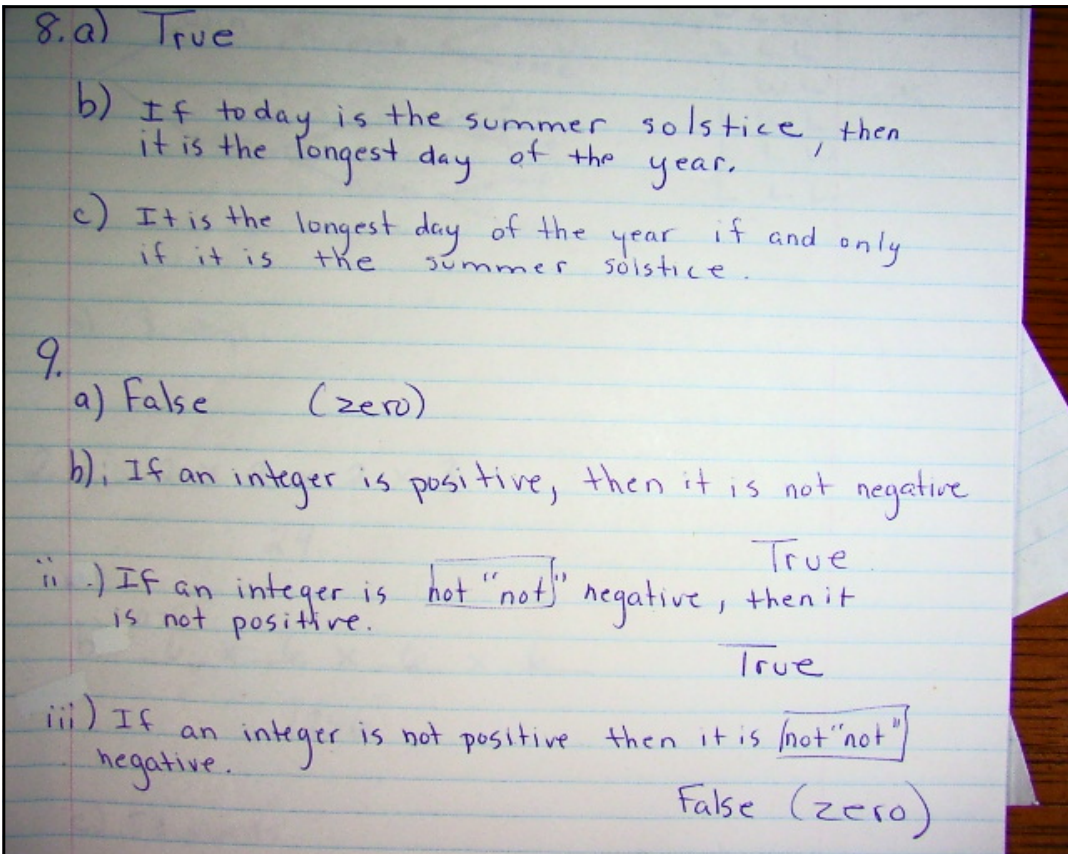 8. a) True
b) If today is the summer solstice, then
it is the longest day of the year.
c) It is the longest day of the year if and only
if it is the summer solstice.
9.
a) False (zero)
b) i If an integer is positive, then it is not negative
True
ii.) If an integer is not "not" negative, then it
is not positive.
True
iii) If an integer is not positive then it is not "not"
negative.
False (zero)